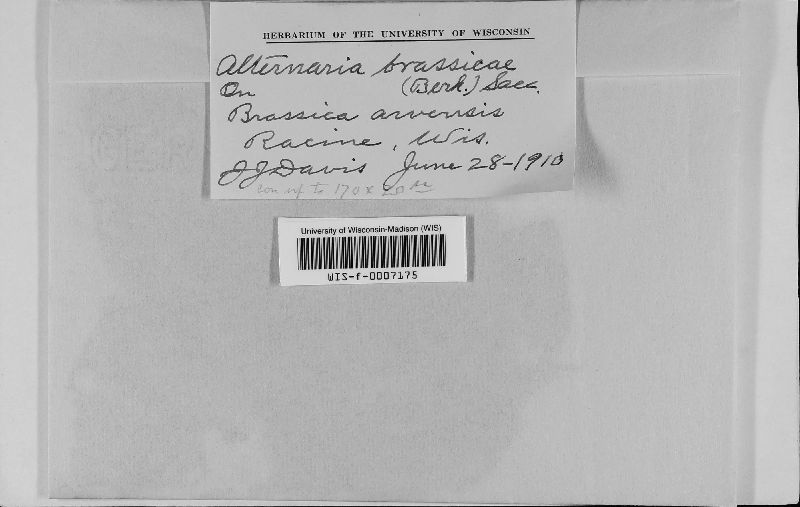 HERBARIUM OF THE UNIVERSITY OF WISCONSIN
Alternaria brassicae
On (Berk.) Sacc.
Brassica arvensis
Racine, Wis.
JJDavis June 28-1910
con up to 170 x 20 µ
University of Wisconsin-Madison (WIS)
WIS-f-0007175